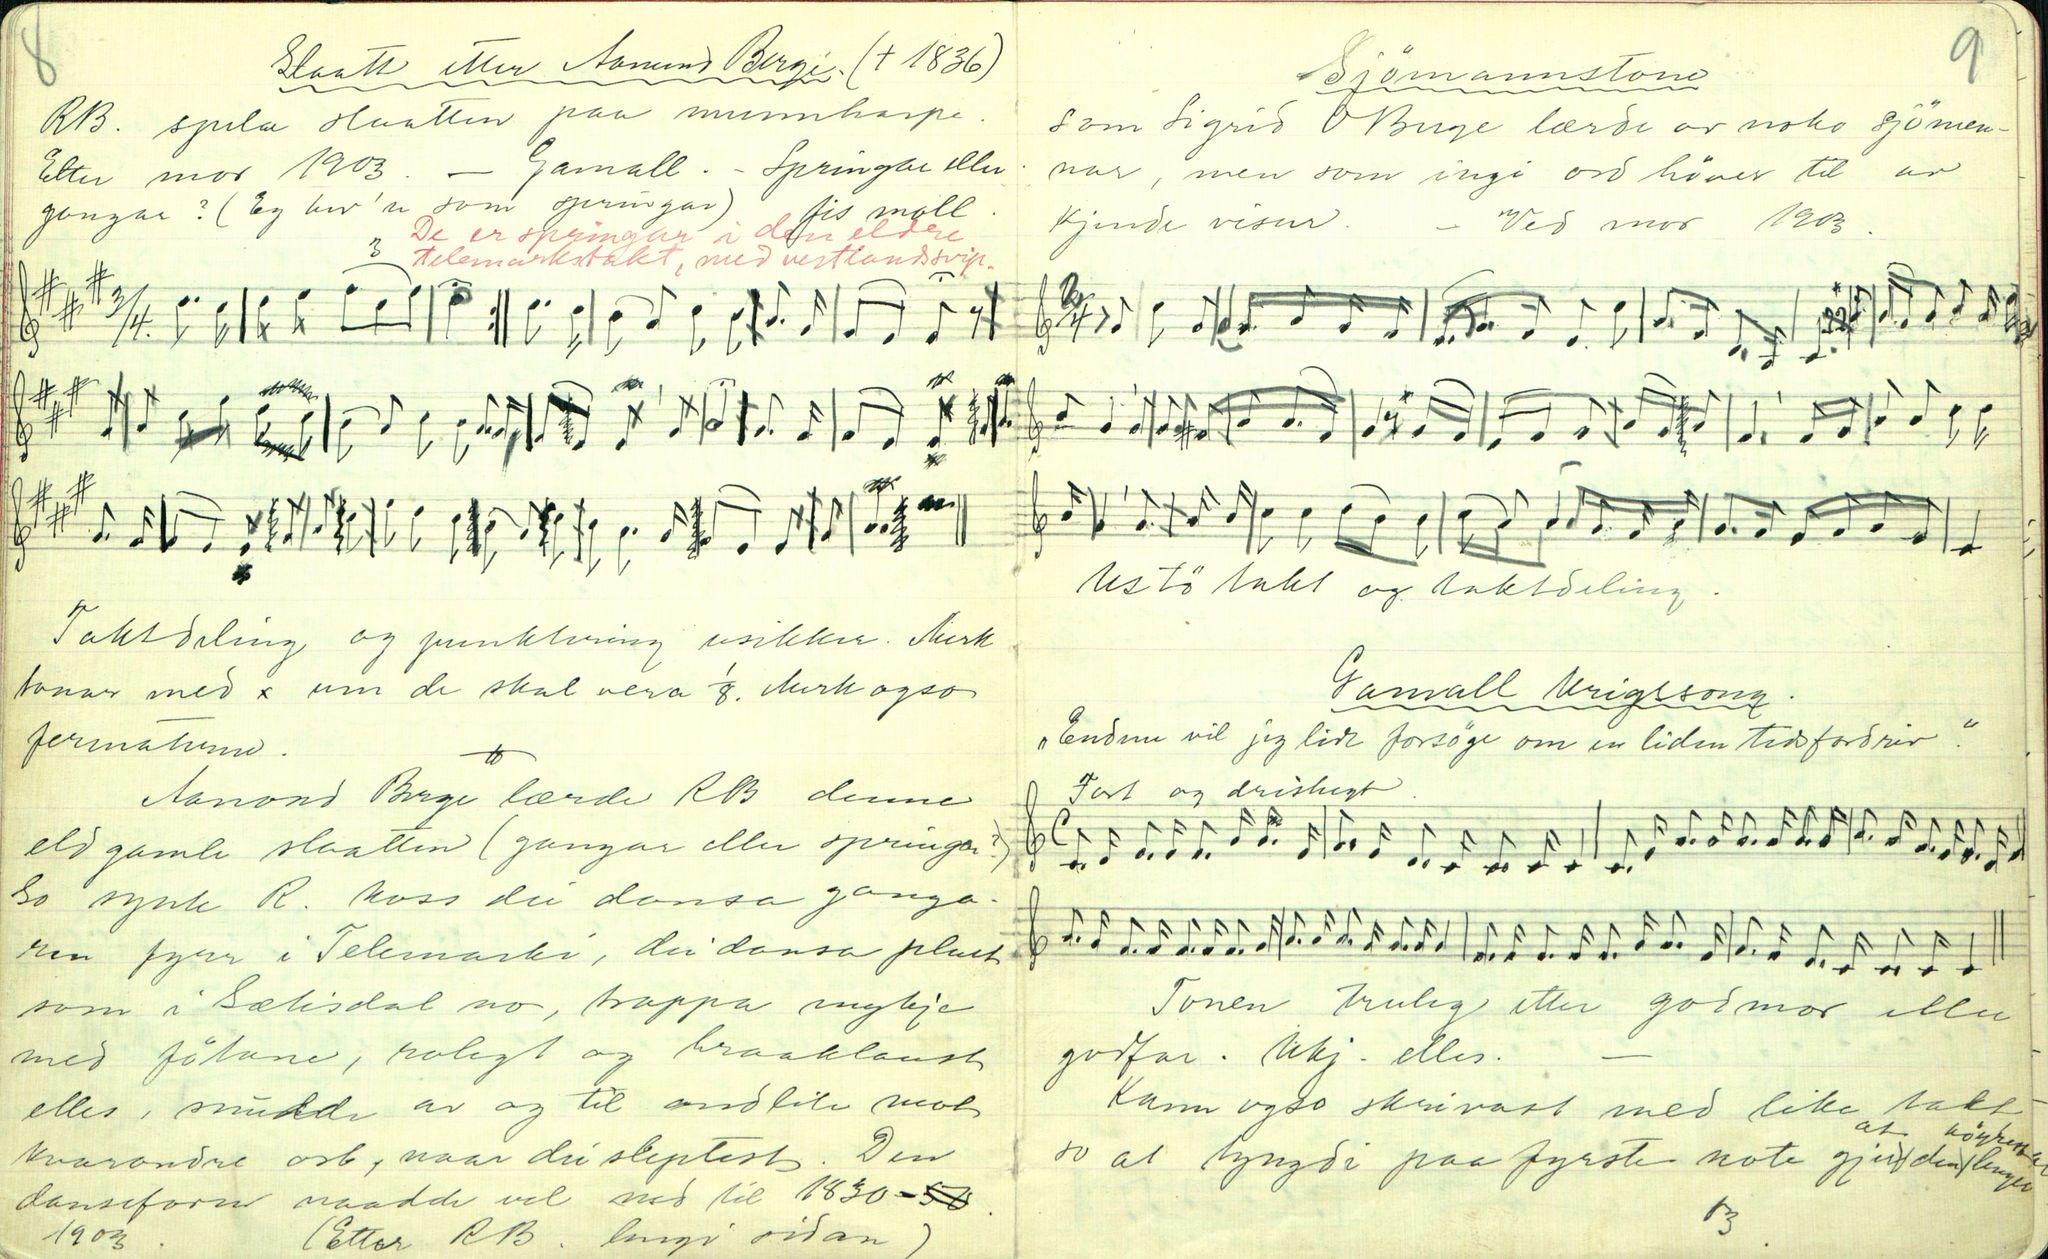 8
Slaatt etter Aamund Berge. († 1836)
RB. spela slaatten paa munnharpe.
Etter mor 1903. — Gamall. - Springar eller
gangar? (Eg hev'n som springar) fis moll.
De er springar i den eldre
telemarkstakt, med vestlandssvip.
3
3/4.
Taktdeling og punktering usikker. Merk
tonar med x um de skal vera 1/8. Merk ogso
fermatune.
Aamond Berge lærde RB denne
eldgamle slaatten (gangar eller springar?)
So synte R. koss dei dansa ganga-
ren fyrr i Telemarki, dei dansa plent
som i Sætisdal no, trappa mykje
med føtane, rolegt og braaklaust
elles, snudde av og til andlite mot
kvarandre osb, naar dei sleptest. Den
danseform naadde vel ned til 1830-50.
1903. (Etter RB. lengi sidan)
9
Sjömannstone
som Sigrid O Berge lærde av noko sjömen-
nar, men som ingi ord höver til av
kjende visur. — Ved mor 1903.
2/4
Ustö takt og taktdeling.
Gamall krigssong.
„Endnu vil jeg lidt forsöge om en liden tidsfordriv."
Fort og dristugt.
C
Tonen truleg etter godmor eller
godfar. Ukj. elles. —
Kann ogso skrivast med like takt
at höyrest at
so at tyngdi paa fyrste note gjer den lenger
03